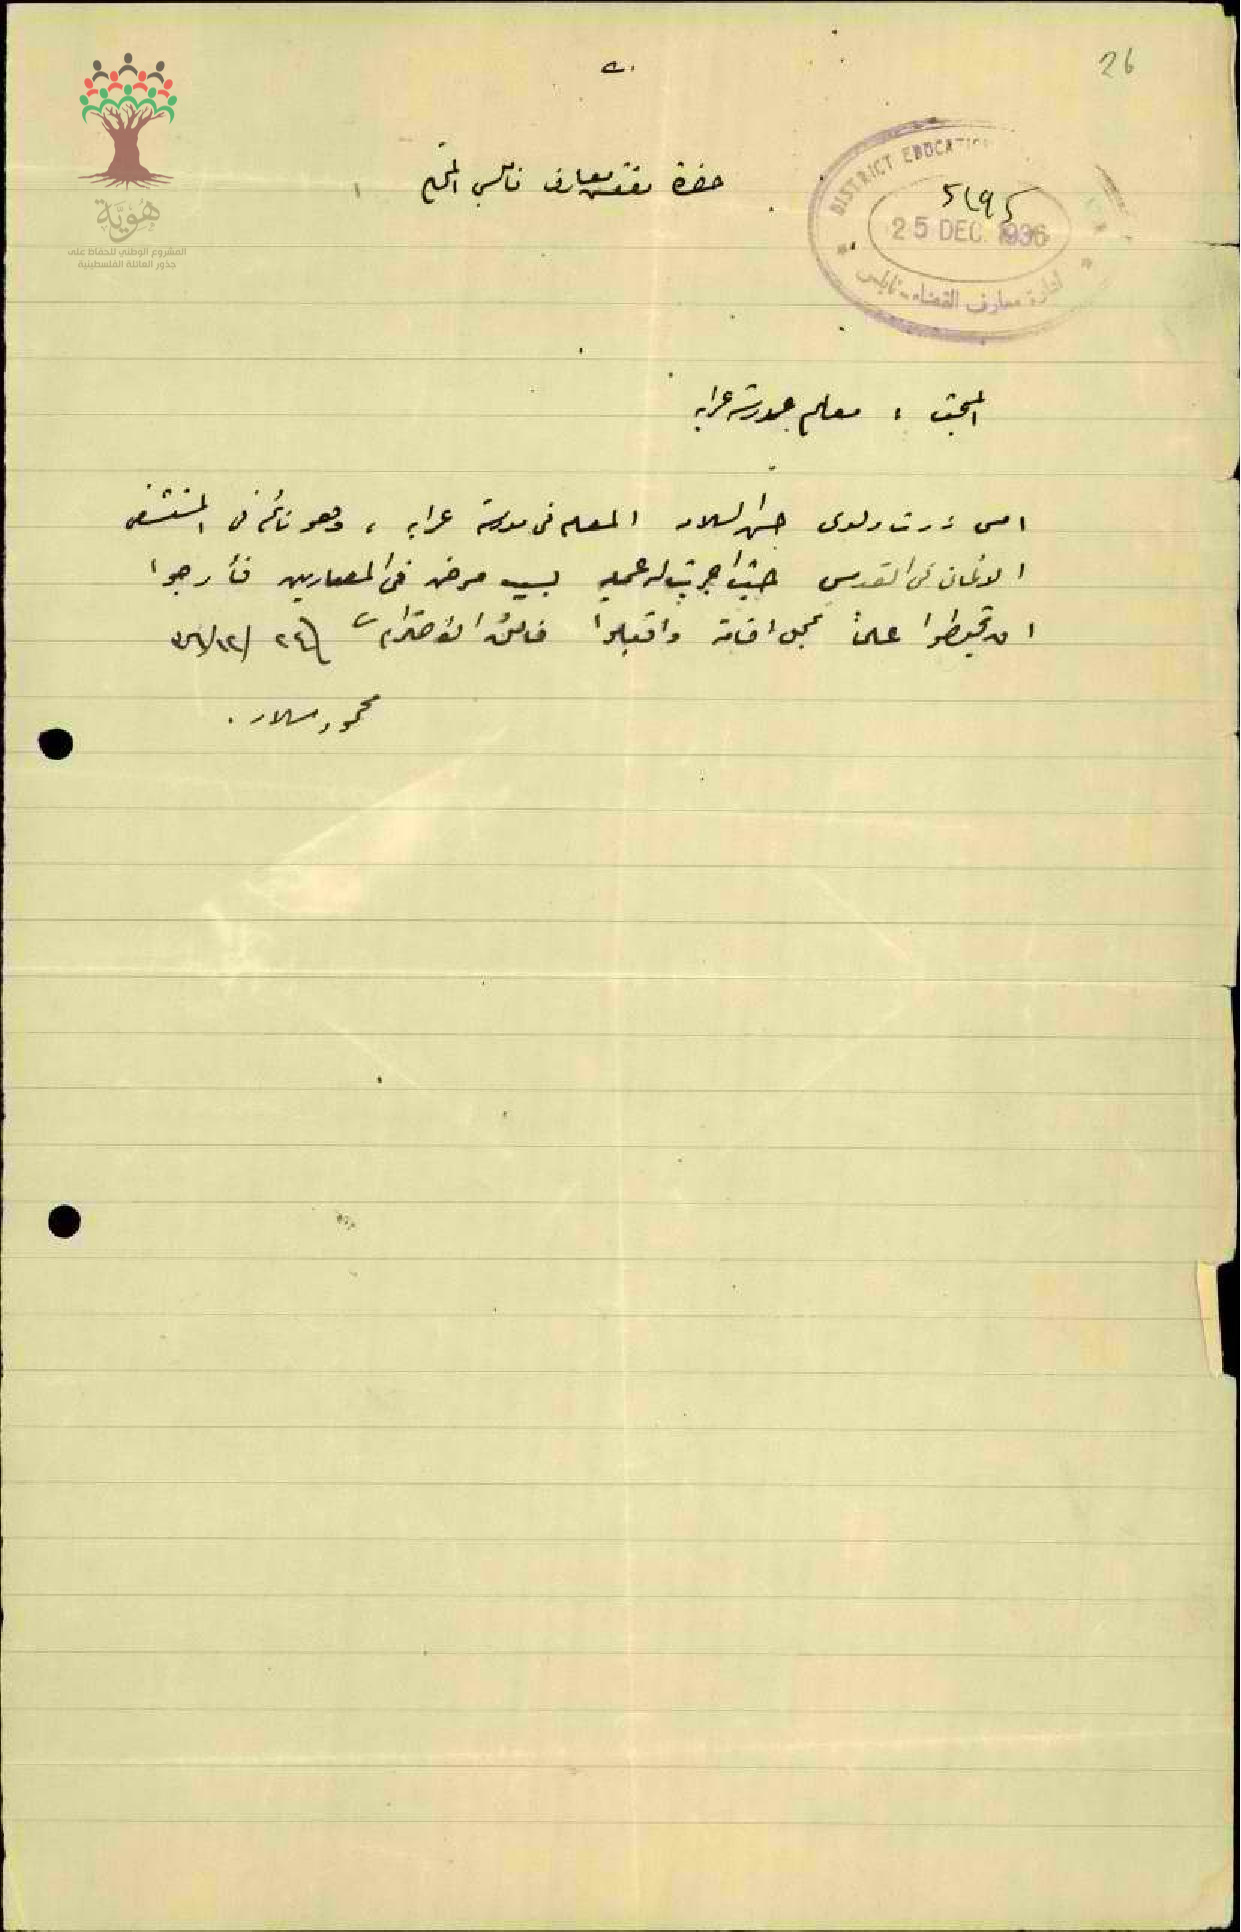 26
حضرة مفتش معارف نابلس المحترم
DISTRICT EDUCATION
25 DEC. 1936
ادارة معارف القضاء - نابلس
هُوِيَّة
المشروع الوطني للحفاظ على
جذور العائلة الفلسطينية
المبحث : معلم بمدرسة عرابه
امس زرت ولدي حسن السلاد المعلم في مدرسة عرابه ، وهو نائم في المستشفى
الالماني في القدس حيث اجريت له عملية بسبب مرض في المصارين فأرجوا
ان تحيطوا علماً بمحل اقامته واقبلوا فائق الاحترام ٢٤/١٢/٣٦
محمود سلاد .